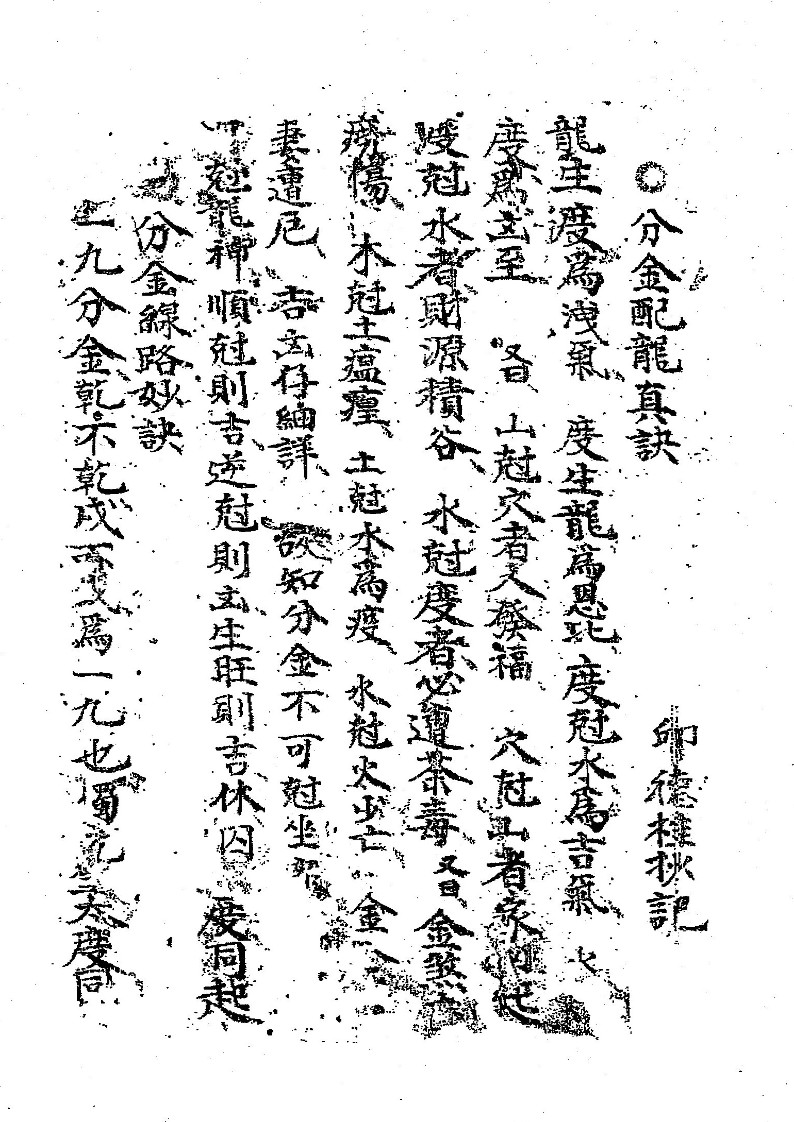 ○分金配龍真訣
德桂抄記
龍生度為洩氣 度生龍為恩 度尅水為吉氣 水
度為玄至 又曰 山尅穴者人發福 穴尅山者家 起
度尅水者財源積谷 水尅度者必遭荼毒 又曰 金煞
癆傷 木尅土瘟瘽 土尅水為疫 水尅火少亡 金
妻遭厄 吉凶仔細詳 欲知分金不可尅坐
尅龍神順尅則吉逆尅則玄生旺則吉休囚 度同起
分金線路妙訣
一九分金乾不乾戌 為一九也 度同